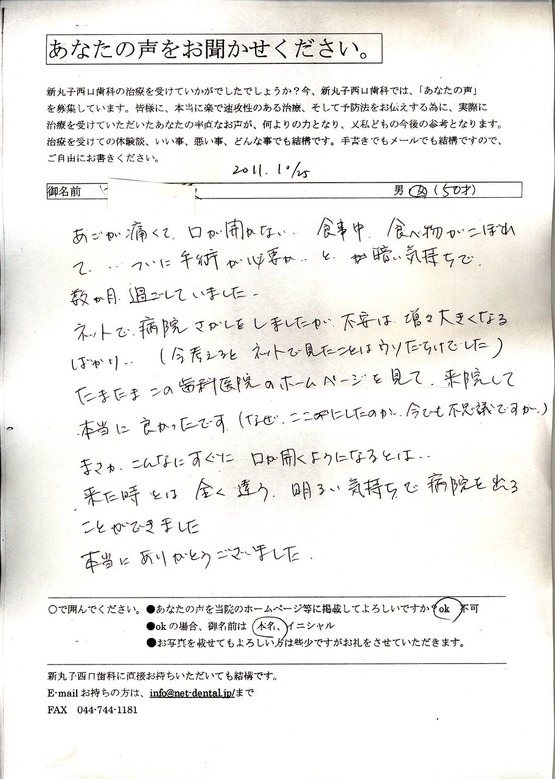 あなたの声をお聞かせください。
新丸子西口歯科の治療を受けていかがでしたでしょうか？今、新丸子西口歯科では、「あなたの声」
を募集しています。皆様に、本当に楽で速攻性のある治療、そして予防法をお伝えする為に、実際に
治療を受けていただいたあなたの率直なお声が、何よりの力となり、又私どもの今後の参考となります。
治療を受けての体験談、いい事、悪い事、どんな事でも結構です。手書きでもメールでも結構ですので、
ご自由にお書きください。
2011. 10/25
御名前 男 女 (50才)
あごが痛くて、口が開かない、 食事中、食べ物がこぼれ
て、‥ ついに手術が必要か‥ と、 暗い気持ちで、
数か月過ごしていました。
ネットで、病院さがしをしましたが、不安は、増々大きくなる
ばかり‥ (今考えると ネットで見たことはウソだらけでした)
たまたまこの歯科医院のホームページを見て、来院して
本当に良かったです (なぜ、ここにしたのか、今でも不思議ですが)
まさか、こんなにすぐに 口が開くようになるとは‥
来た時とは 全く違う、明るい気持ちで病院を出る
ことができました
本当にありがとうございました。
○で囲んでください。●あなたの声を当院のホームページ等に掲載してよろしいですか？ok 不可
●okの場合、御名前は 本名、イニシャル
●お写真を載せてもよろしい方は些少ですがお礼をさせていただきます。
新丸子西口歯科に直接お持ちいただいても結構です。
E-mailお持ちの方は、info@net-dental.jp/まで
FAX 044-744-1181